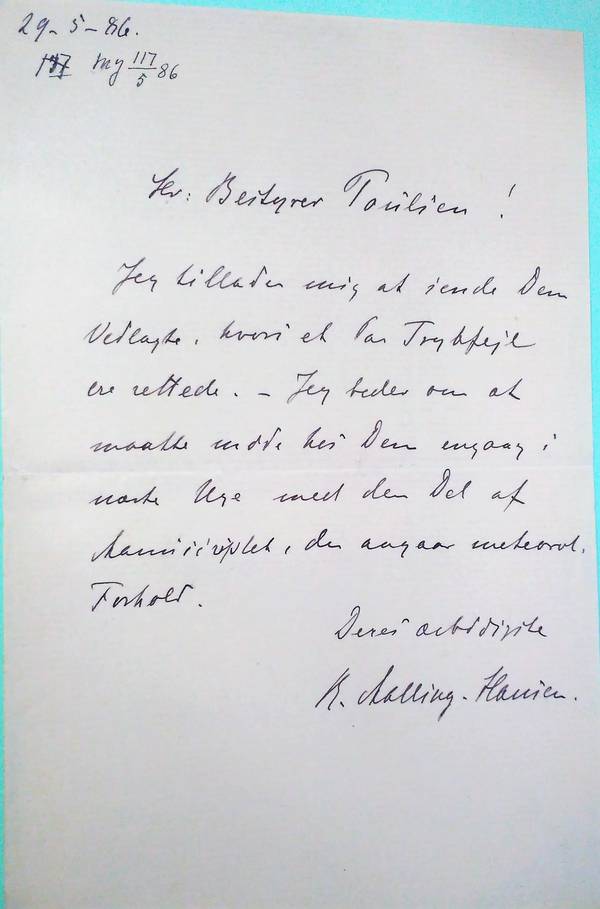 29-5-86.
117 My 117/5 86
Hr: Bestyrer Paulsen!
Jeg tillader mig at sende Dem
Vedlagte, hvori et Par Trykfejl
ere rettede. – Jeg beder om at
maatte møde hos Dem engang i
næste Uge med den Del af
Manuscriptet, der angaar meteorol.
Forhold.
Deres ærbødigste
R. Malling-Hansen.